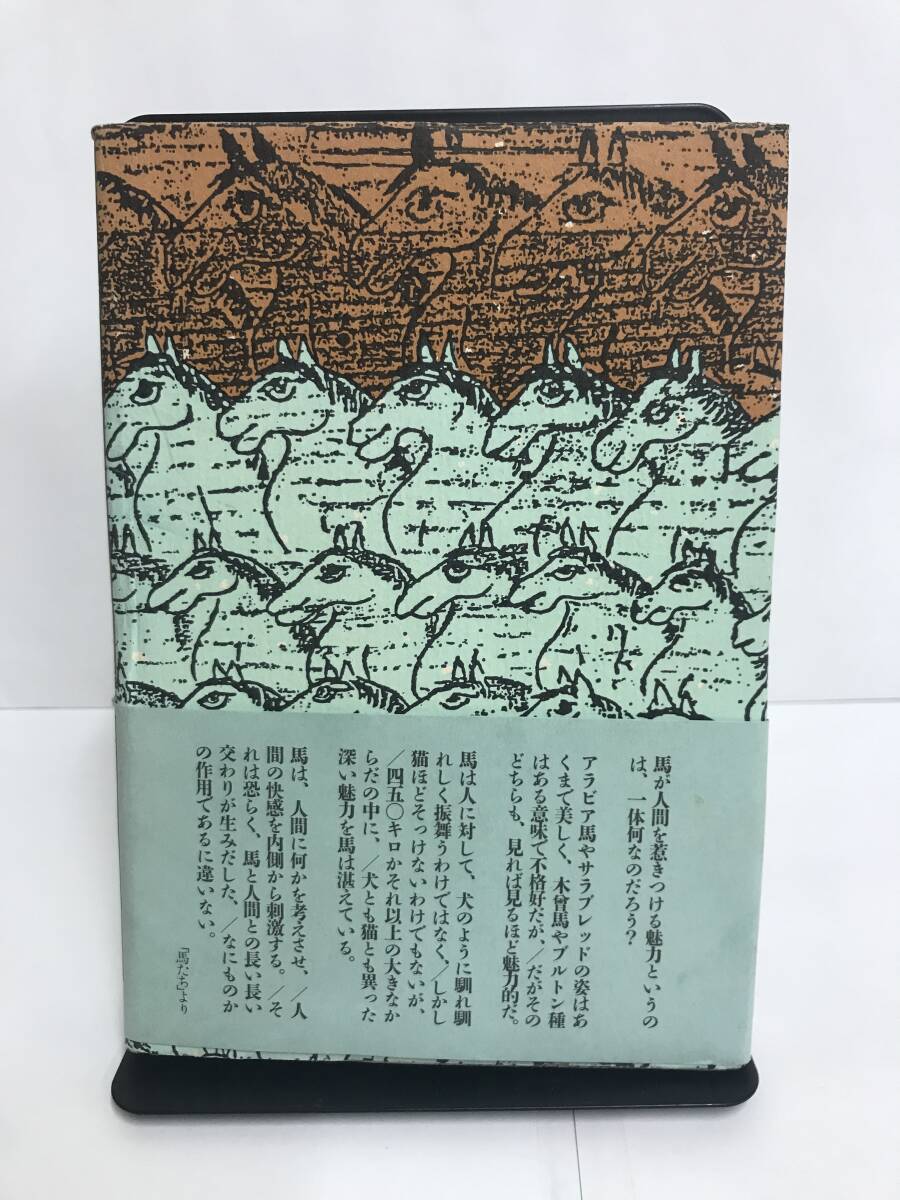 馬が人間を惹きつける魅力というの
は、一体何なのだろう?
アラビア馬やサラブレッドの姿はあ
くまで美しく、木曾馬やブルトン種
はある意味で不格好だが、/だがその
どちらも、見れば見るほど魅力的だ。
馬は人に対して、犬のように馴れ馴
れしく振舞うわけではなく、/しかし
猫ほどそっけないわけでもないが、
/四五〇キロかそれ以上の大きなか
らだの中に、/犬とも猫とも異った
深い魅力を馬は湛えている。
馬は、人間に何かを考えさせ、/人
間の快感を内側から刺激する。/そ
れは恐らく、馬と人間との長い長い
交わりが生みだした、/なにものか
の作用であるに違いない。
「馬たち」より